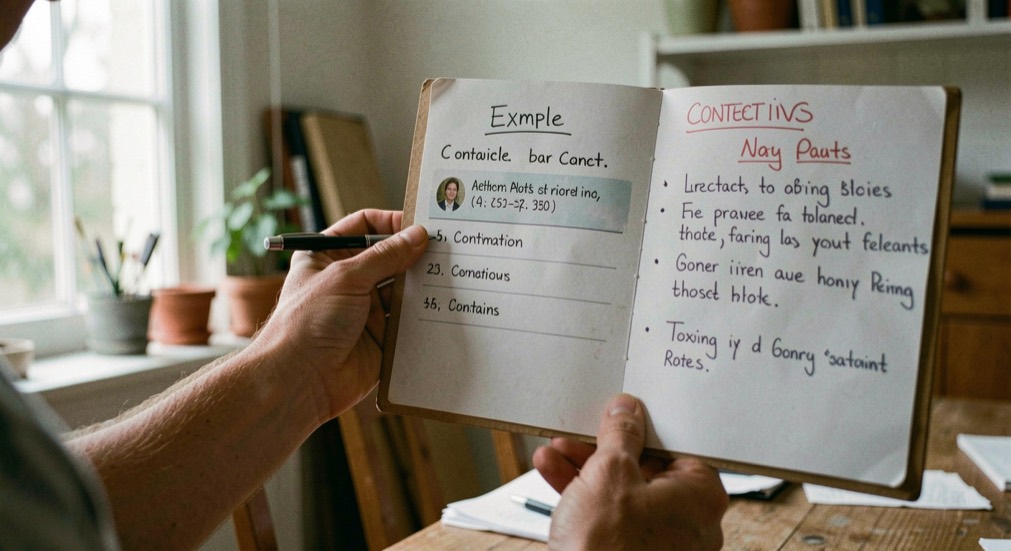 Exmple
Contaicle. bar Canct.
Aethem Alots st riored inc,
(4: (51-57. 350)
5, Contmation
23. Comatious
36, Contains
CONTECTIVS
Nay Pauts
• Lrectacts to obing Blcies
• Fre pravee fa tolanect.
thote, faring las yout feleants
• Goner iiren aue hony Reinng
thosct blotc.
• Toxing iy d Gonry "sataint
Rotes.